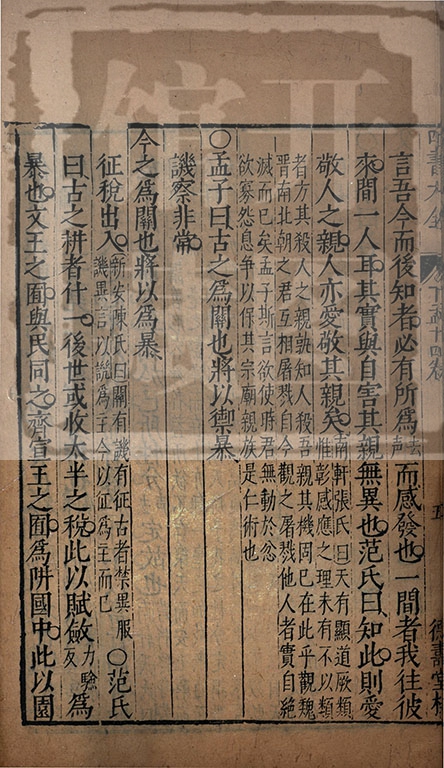 書大全
言吾今而後知者必有所爲去聲而感發也一間者我往彼
來間一人耳其實與自害其親無異也范氏曰知此則愛
敬人之親人亦愛敬其親矣南軒張氏曰天有顯道厥類
惟彰感應之理未有不以類
者方其殺人之親孰知人殺吾親其機固已在此乎觀魏
晉南北朝之君互相屠戮自今觀之屠戮他人者實自絶
滅而已矣孟子斯言欲使時君無動於忿
欲寡怨息爭以保其宗廟親族是仁術也
○孟子曰古之爲關也將以禦暴
譏察非常
今之爲關也將以爲暴
征稅出入新安陳氏曰關有譏有征古者禁異服
譏異言以譏爲主今以征爲主而已○范氏
曰古之耕者什一後世或收太半之稅此以賦斂力驗反爲
暴也文王之囿與民同之齊宣王之囿爲阱國中此以園